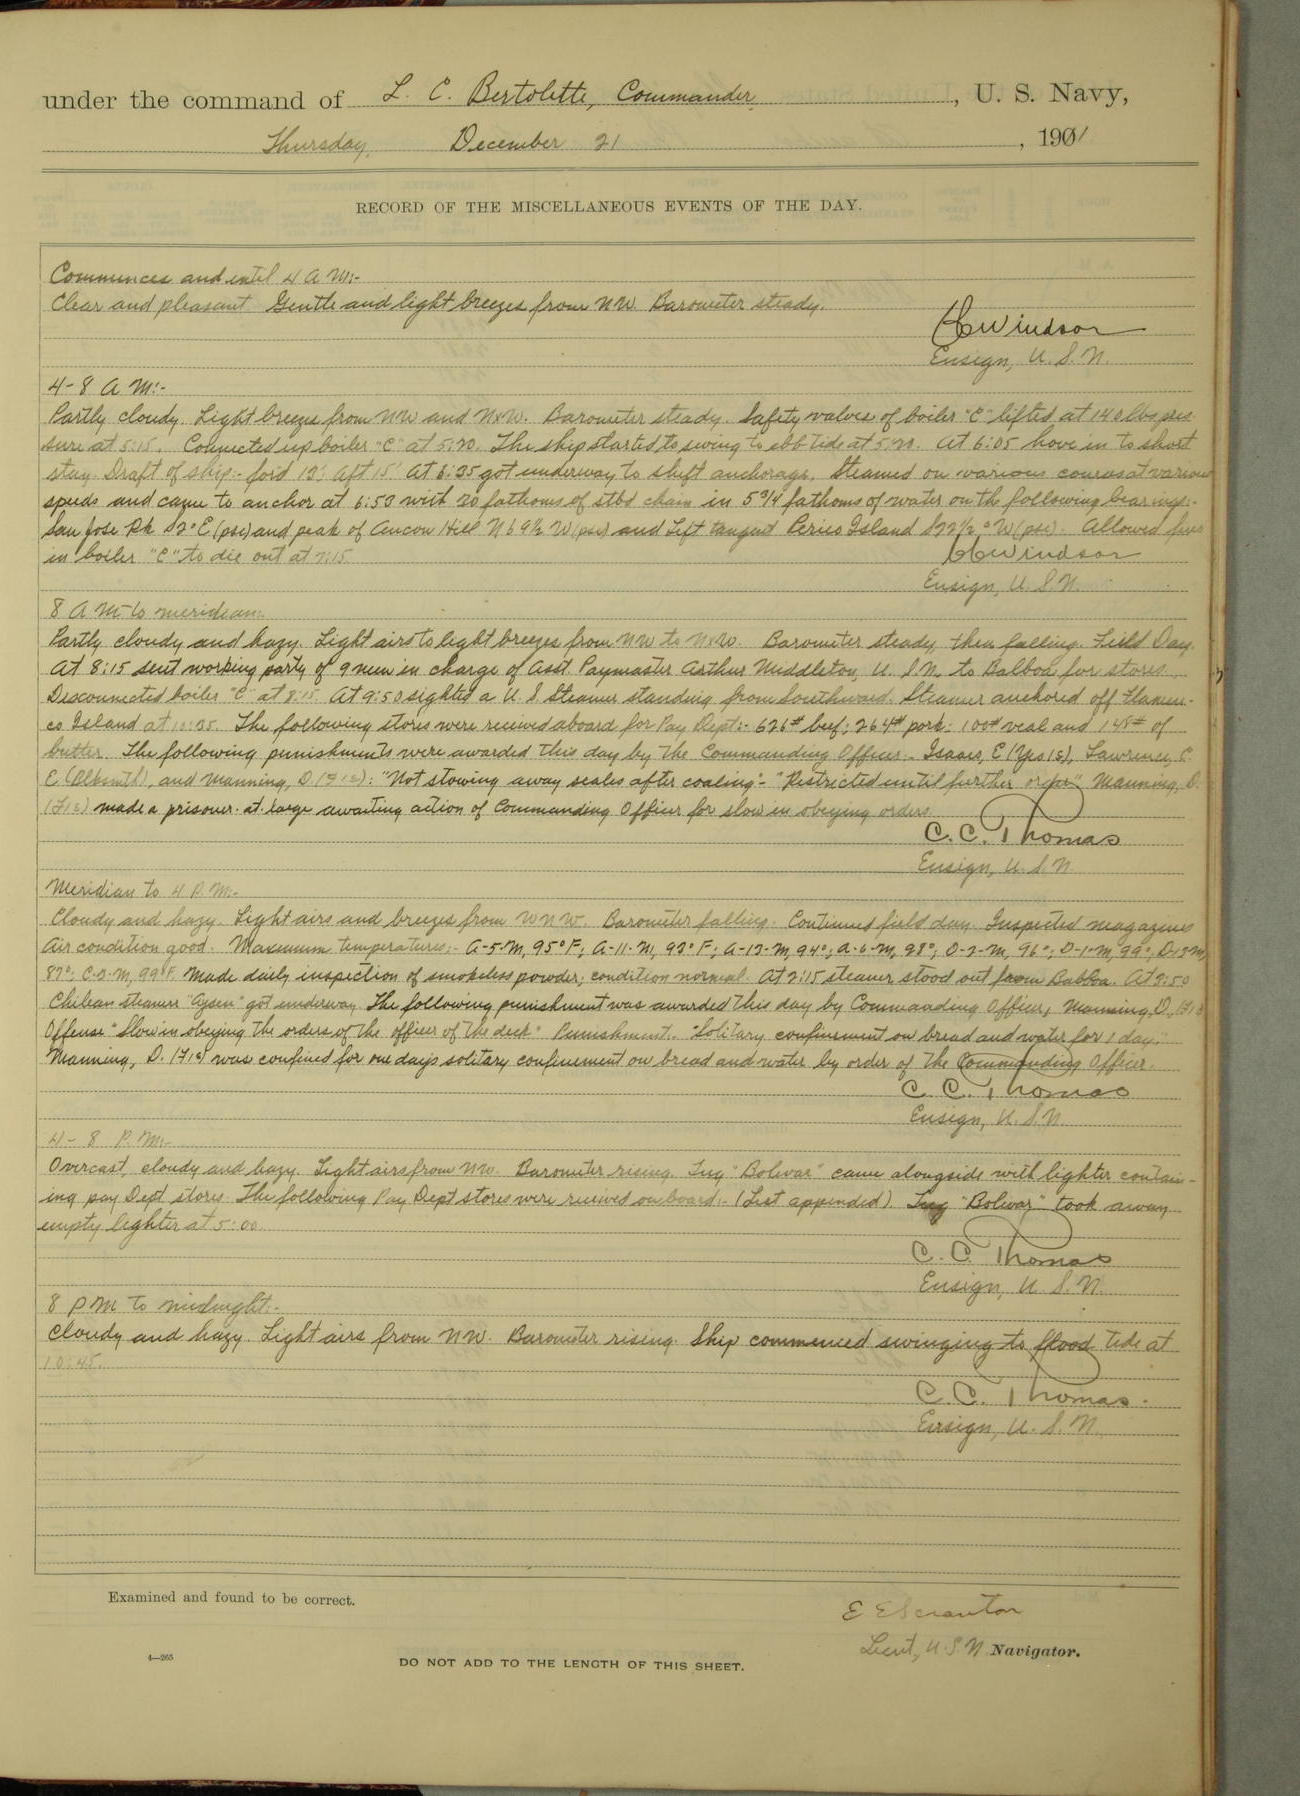 under the command of L. C. Bertolette, Commander, U. S. Navy,
Thursday, December 21, 1901
RECORD OF THE MISCELLANEOUS EVENTS OF THE DAY.
Commences and until 4 A M:-
Clear and pleasant Gentle and light breezes from NW. Barometer steady.
Windsor
Ensign, U. S. N.
4-8 A M:-
Partly cloudy. Light breezes from NW and NxW. Barometer steady. Safety valves of boiler "C" lifted at 140 lbs pres-
sure at 5:15. Connected up boiler "C" at 5:20. The ship started to swing to ebb tide at 5:20. At 6:05 hove in to short
stay. Draft of ship:- for'd 13', Aft 15' At 6:35 got underway to shift anchorage. Steamed on various courses at various
speeds and came to anchor at 6:53 with 20 fathoms of stbd chain in 5 3/4 fathoms of water on the following bearings:-
San Jose Rk S2°E (psc) and peak of Ancon Hill N 69½ W (psc) and Left tangent Perico Island S72½°W (psc). Allowed fires
in boiler "C" to die out at 7:15.
Windsor
Ensign, U. S. N.
8 A M to meridian:-
Partly cloudy and hazy. Light airs to light breezes from NW to NxW. Barometer steady, then falling. Field Day.
At 8:15 sent working party of 9 men in charge of Asst. Paymaster Arthur Middleton, U. S. N. to Balboa for stores.
Disconnected boiler "C" at 8:15. At 9:50 sighted a U. S. Steamer standing from Southward. Steamer anchored off Flamen-
co Island at 10:35. The following stores were received aboard for Pay Dept:- 626# beef; 264# pork; 100# veal and 148# of
butter. The following punishments were awarded this day by the Commanding Officer:- Isaacs, E (Yeo 1s), Lawrence, C.
E (Blksmth), and Manning, D. (F1c): "Not stowing away scales after coaling":- "Restricted until further orders". Manning, D.
(F1c) made a prisoner at large awaiting action of Commanding Officer for slow in obeying orders.
C. C. Thomas
Ensign, U. S. N.
Meridian to 4 P. M:-
Cloudy and hazy. Light airs and breezes from WNW. Barometer falling. Continued field day. Inspected magazines
Air condition good. Maximum temperatures:- A-5-M, 95°F; A-11-M, 93°F; A-13-M, 94°; A-6-M, 98°; D-2-M, 96°; D-1-M, 99°; D-13-M,
87°; C-2-M, 99°F. Made daily inspection of smokeless powder; condition normal. At 2:15 steamer stood out from Balboa. At 3:50
Chilean steamer "Aysen" got underway. The following punishment was awarded this day by Commanding Officer, Manning, D., (F1c)
Offense "Slow in obeying the orders of the officer of the deck" Punishment. "Solitary confinement on bread and water for 1 day."
Manning, D. (F1c) was confined for one days solitary confinement on bread and water by order of the Commanding Officer.
C. C. Thomas
Ensign, U. S. N.
4-8 P. M:-
Overcast, cloudy and hazy. Light airs from NW. Barometer rising. Tug "Bolivar" came alongside with lighter contain-
ing pay Dept stores. The following Pay Dept stores were received on board:- (List appended). Tug "Bolivar" took away
empty lighter at 5:00.
C. C. Thomas
Ensign, U. S. N.
8 P M to midnight:-
Cloudy and hazy. Light airs from NW. Barometer rising. Ship commenced swinging to flood tide at
10:45.
C. C. Thomas.
Ensign, U. S. N.
Examined and found to be correct.
E E Scranton
Lieut, U. S. N. Navigator.
4—265
DO NOT ADD TO THE LENGTH OF THIS SHEET.